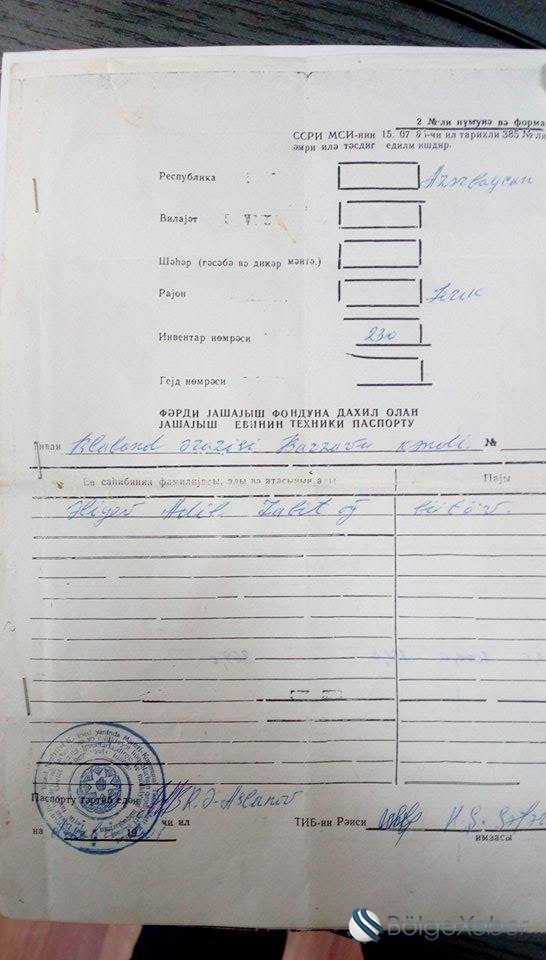 2 №-ли нүмунә вә форма
ССРИ МСИ-нин 15. 07 8 -чи ил тарихли 385 №-ли
әмри илә тәсдиг едилм ишдир.
Республика Azərbaycan
Вилајәт
Шәһәр (гәсәбә вә дикәр мәнтә.)
Рајон Lerik
Инвентар нөмрәси 230
Гејд нөмрәси
ФӘРДИ ЈАШАЈЫШ ФОНДУНА ДАХИЛ ОЛАН
ЈАШАЈЫШ ЕВИНИН ТЕХНИКИ ПАСПОРТУ
Ünван Blaband ərazisi kəndi. №
Ев саһибинин фамилијасы, ады вә атасынын ады Пајы
Əliyev Adil bütöv.
Паспорту тәртиб едән R.Ə-Aslanov
на 19 чи ил
ТИБ-ин Рәиси
имзасы
BölgəXəbər